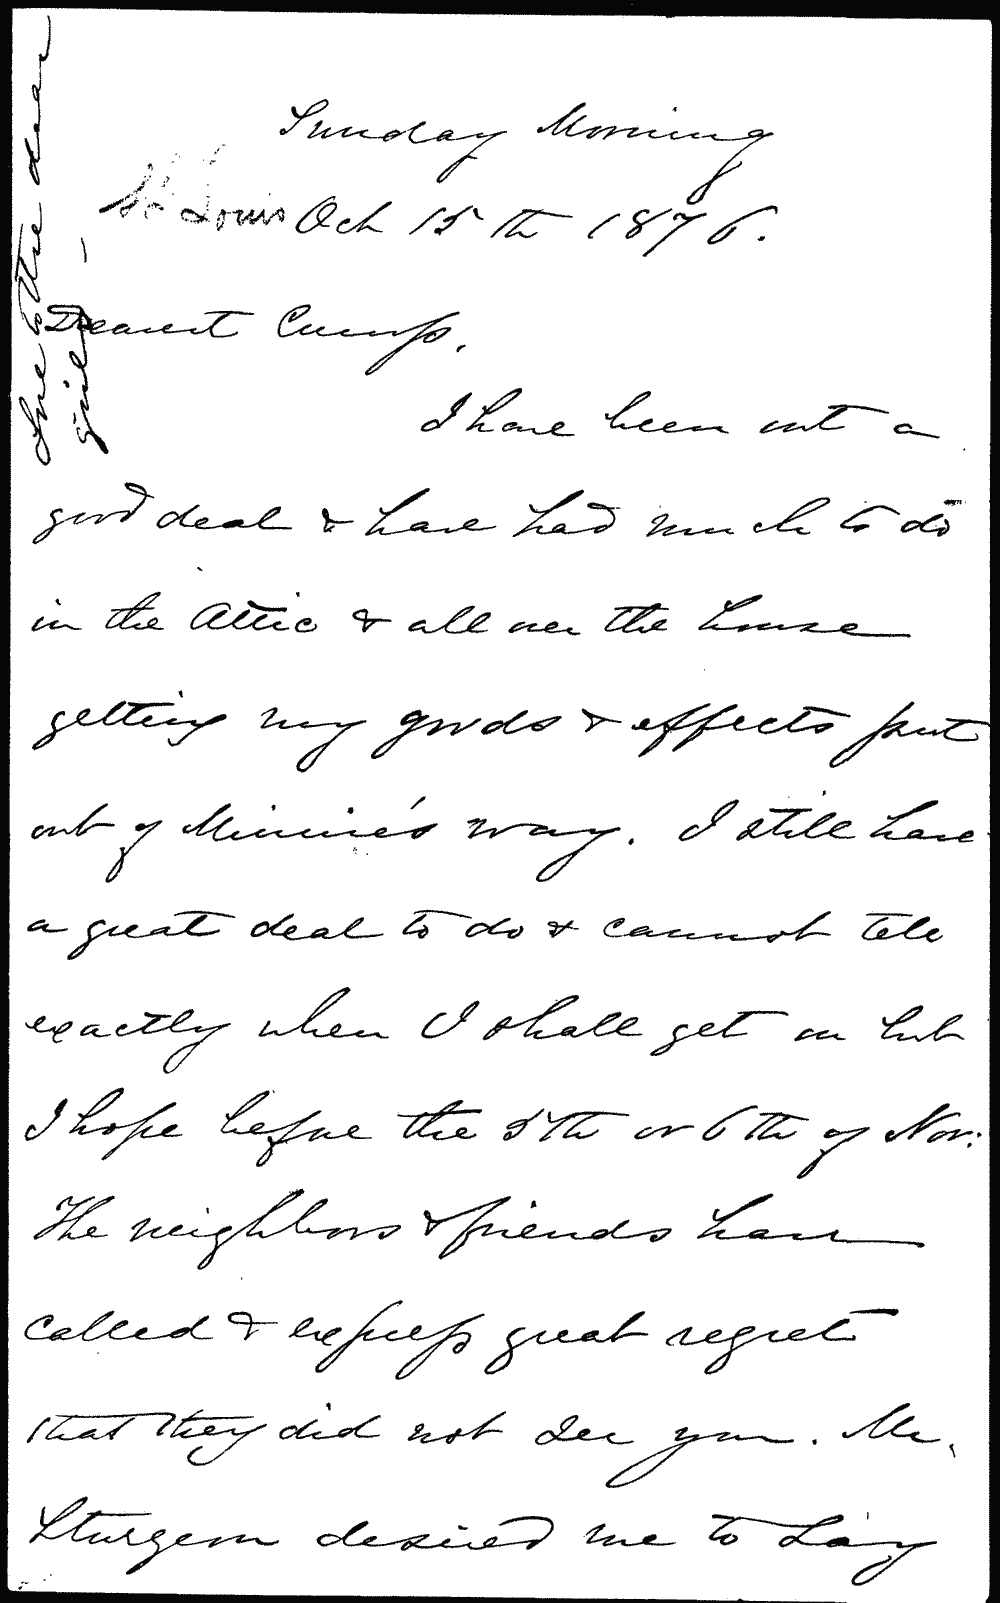 Sunday Morning
St Louis Oct 15th 1876.
Dearest Cump,
I have been out a
good deal & have had much to do
in the Attic & all over the house
getting my goods & effects put
out of Minnie's way. I still have
a great deal to do & cannot tell
exactly when I shall get on but
I hope before the 5th or 6th of Nov:
The neighbors & friends have
called & express great regret
that they did not see you. Mr.
Sturgeon desired me to say
Love to the dear
girls -